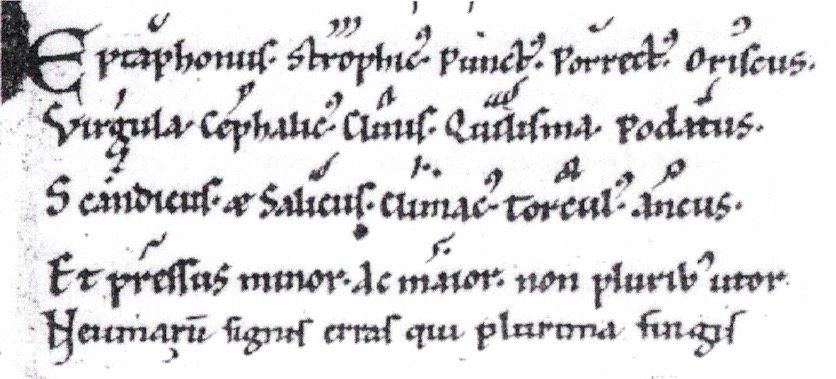 Eptaphonus. Strophicꝰ. Punctꝰ. Porrectꝰ. Oriscus.
Virgula. Cephalicꝰ. Clinis. Quilisma. Podatus.
Scandicus. æ Salicus. Climacꝰ. Torculꝰ. Ancus.
Et pressus minor. Ac maior. non pluribꝰ utor
Neumarū signis erras qui plurima fingis